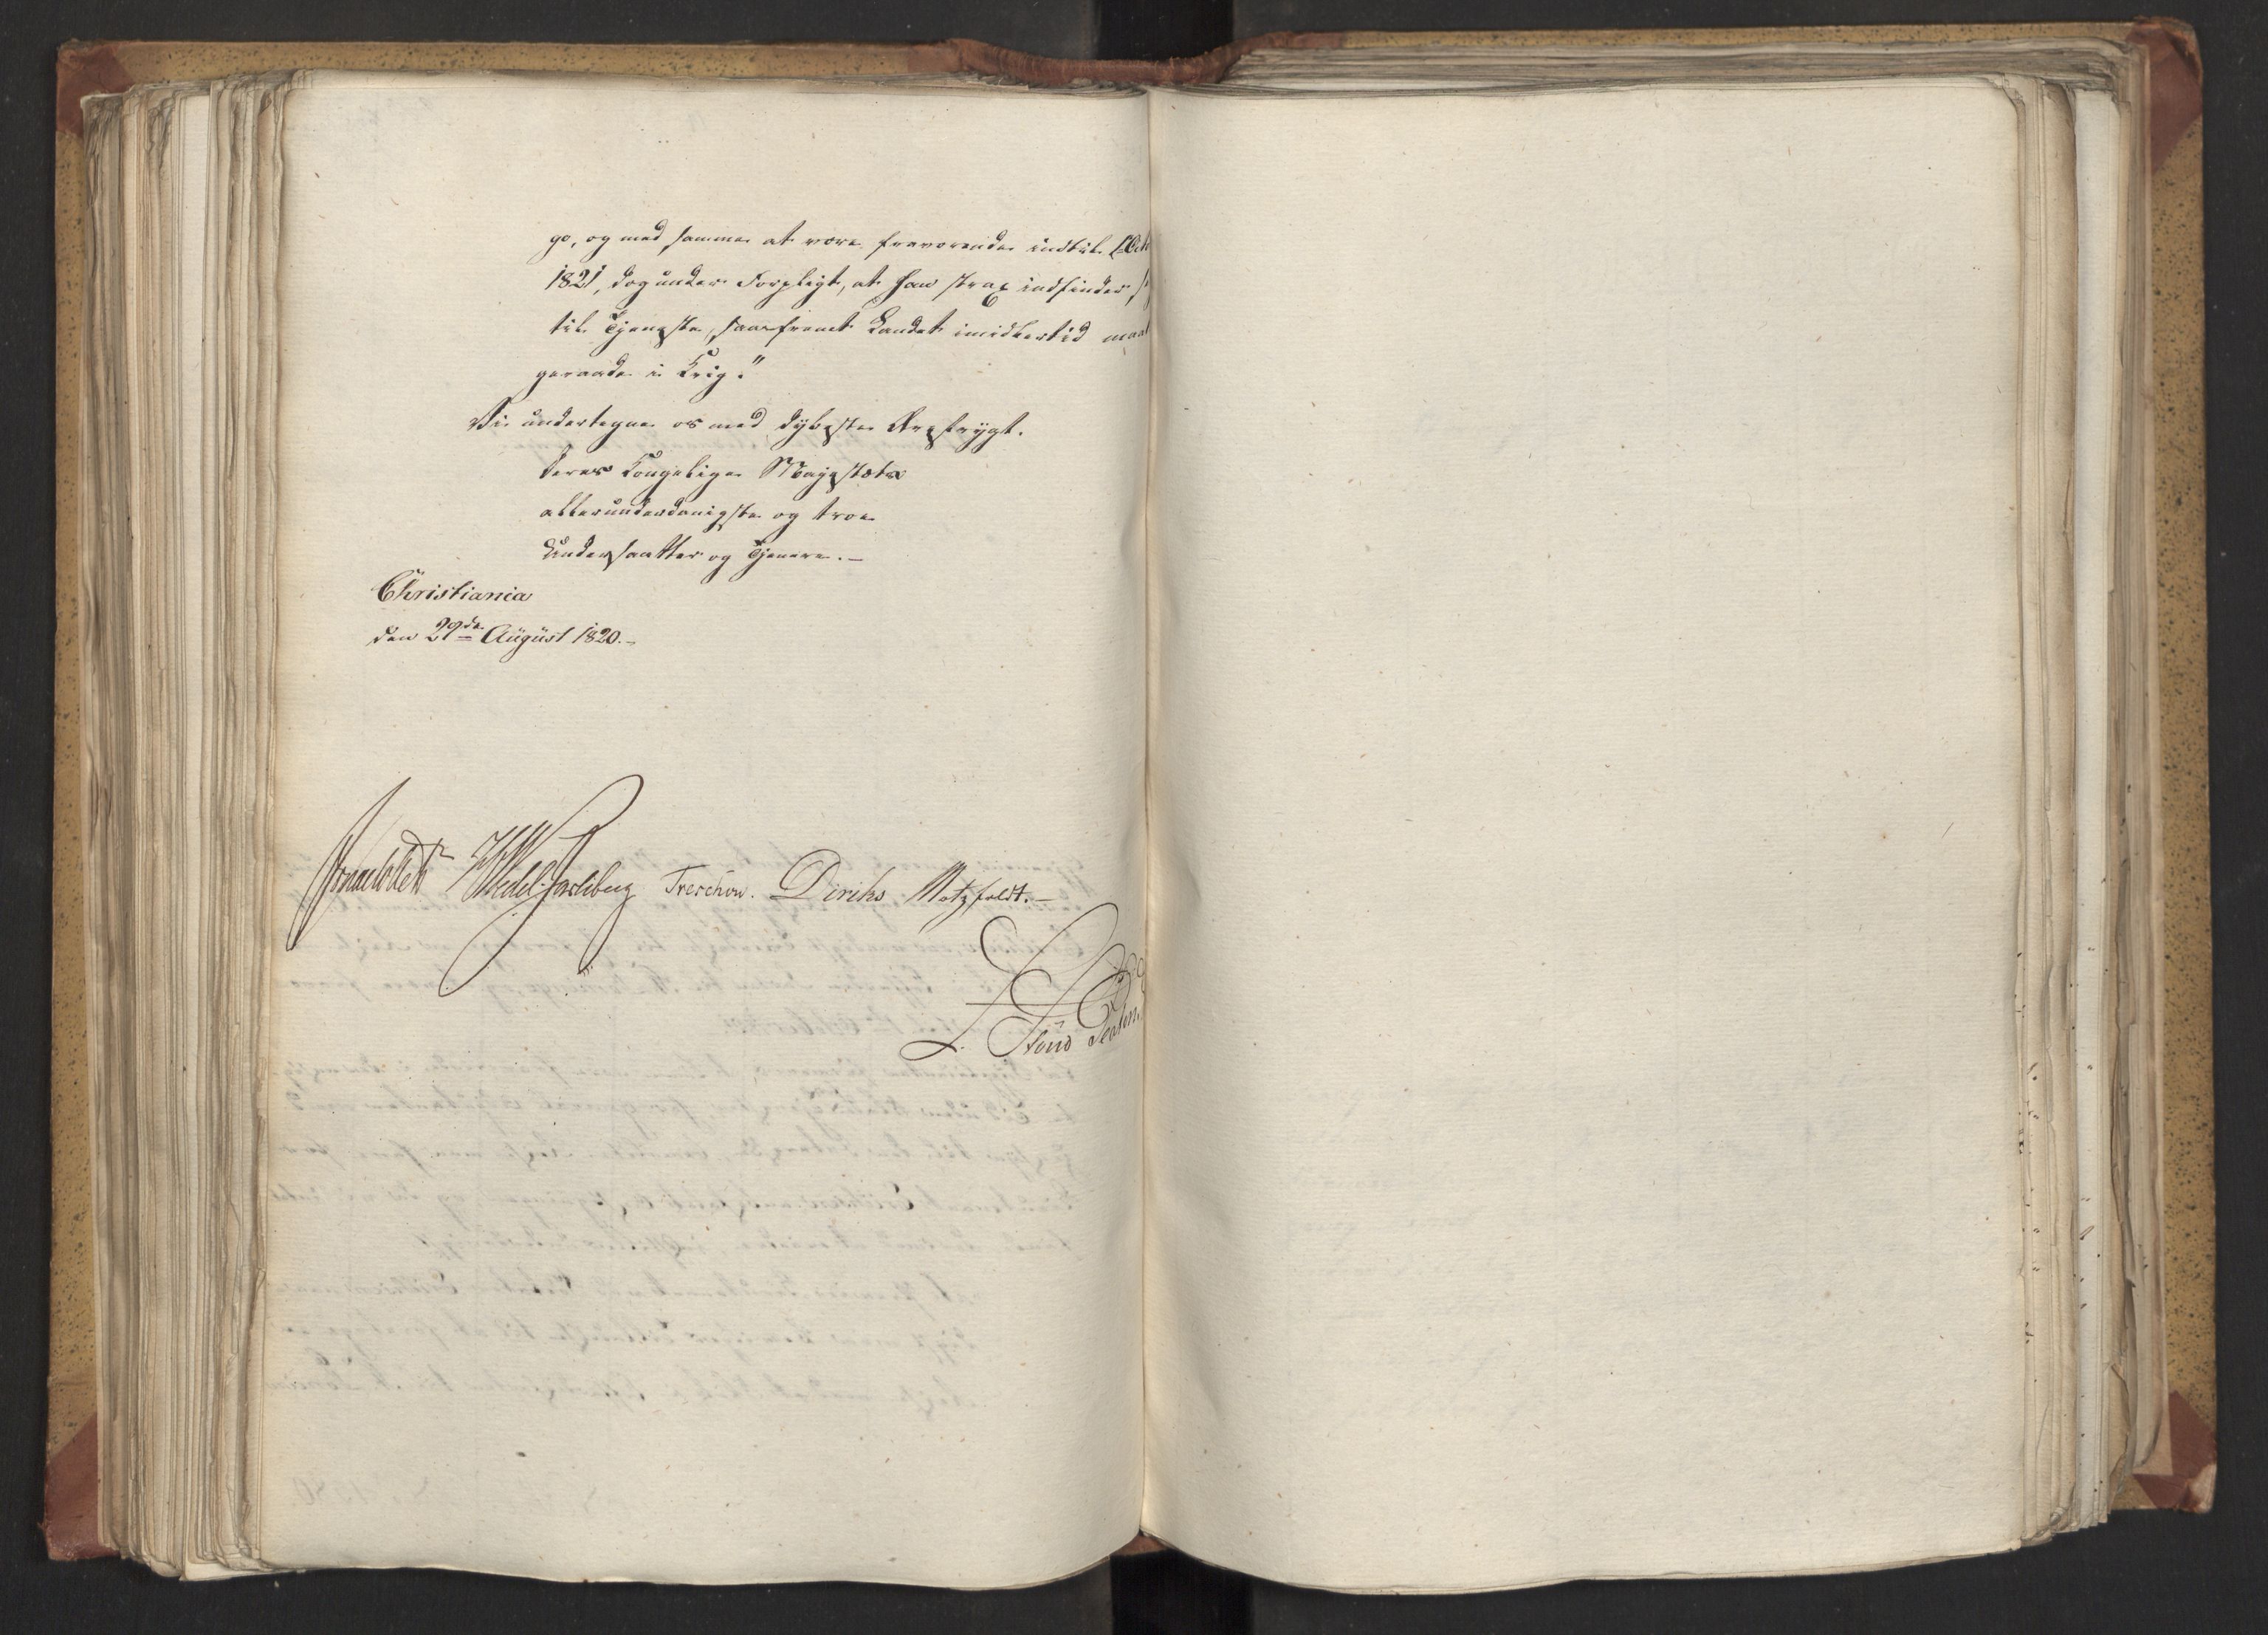 go, og med samme at være fraværende indtil 1 Octb
1821, dog under Forpligt, at han strax indfinder si
til Tjeneste, saafremt Landet imidlertid maat
geraade i Krig."
Vi undertegne os med dybeste Ærefrygt.
Deres Kongelige Majestæts
allerunderdanigste og troe
Undersaatter og Tjenere.-
Christiania
den 29de August 1820.-
HWedel Jarlsberg Treschow. Diriks Motzfeldt.-